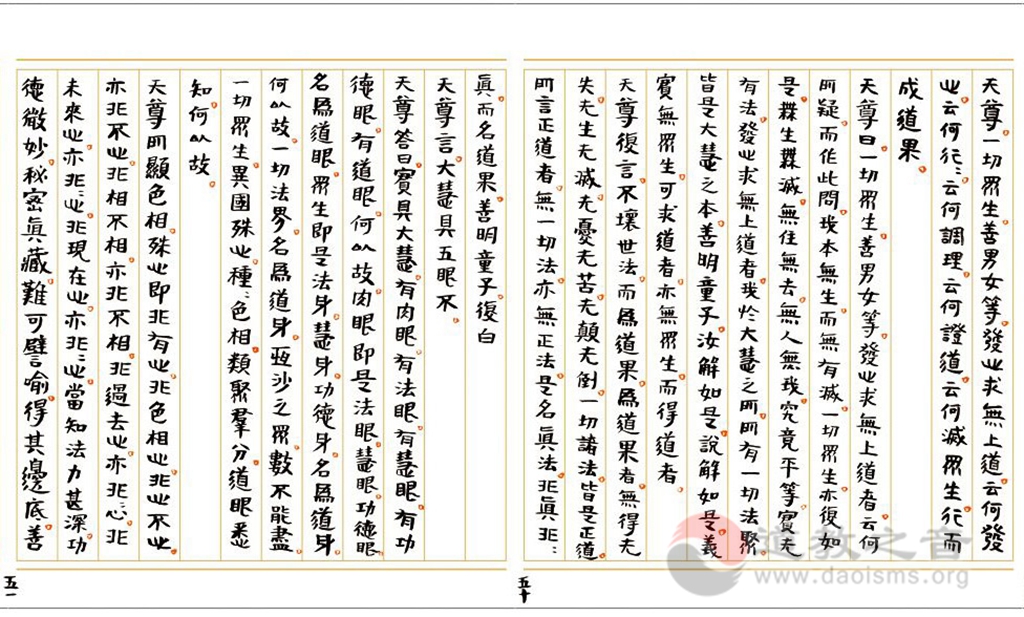 天尊一切眾生善男女等發心求無上道云何發
心云何行:云何調理云何證道云何滅眾生行而
成道果
天尊曰一切眾生善男女等發心求無上道者云何
所疑而作此問我本無生而無有滅一切眾生亦復如
是無生無滅無住無去無人無我究竟平等實无
有法發心求無上道者我於大慧之所所有一切法聚
皆是大慧之本善明童子汝解如是說解如是義
實無眾生可求道者亦無眾生而得道者
天尊復言不壞世法而爲道果爲道果者無得无
失无生无滅无憂无苦无顛无倒一切諸法皆是正道
所言正道者無一切法亦無正法是名眞法非眞非:
五十
眞而名道果善明童子復白
天尊言大慧具五眼不
天尊答曰實具大慧有肉眼有法眼有慧眼有功
德眼有道眼何以故肉眼即是法眼慧眼功德眼
名爲道眼眾生即是法身慧身功德身名爲道身
何以故一切法界名爲道身恆沙之眾數不能盡
一切眾生異國殊心種:色相類聚羣分道眼悉
知何以故
天尊所顯色相殊心即非有心非色相心非心不心
亦非不心非相不相亦非不相非過去心亦非:心非
未來心亦非:心非現在心亦非:心當知法力甚深功
德微妙秘密眞藏難可譬喻得其邊底善
五一
道教之音
www.daoisms.org